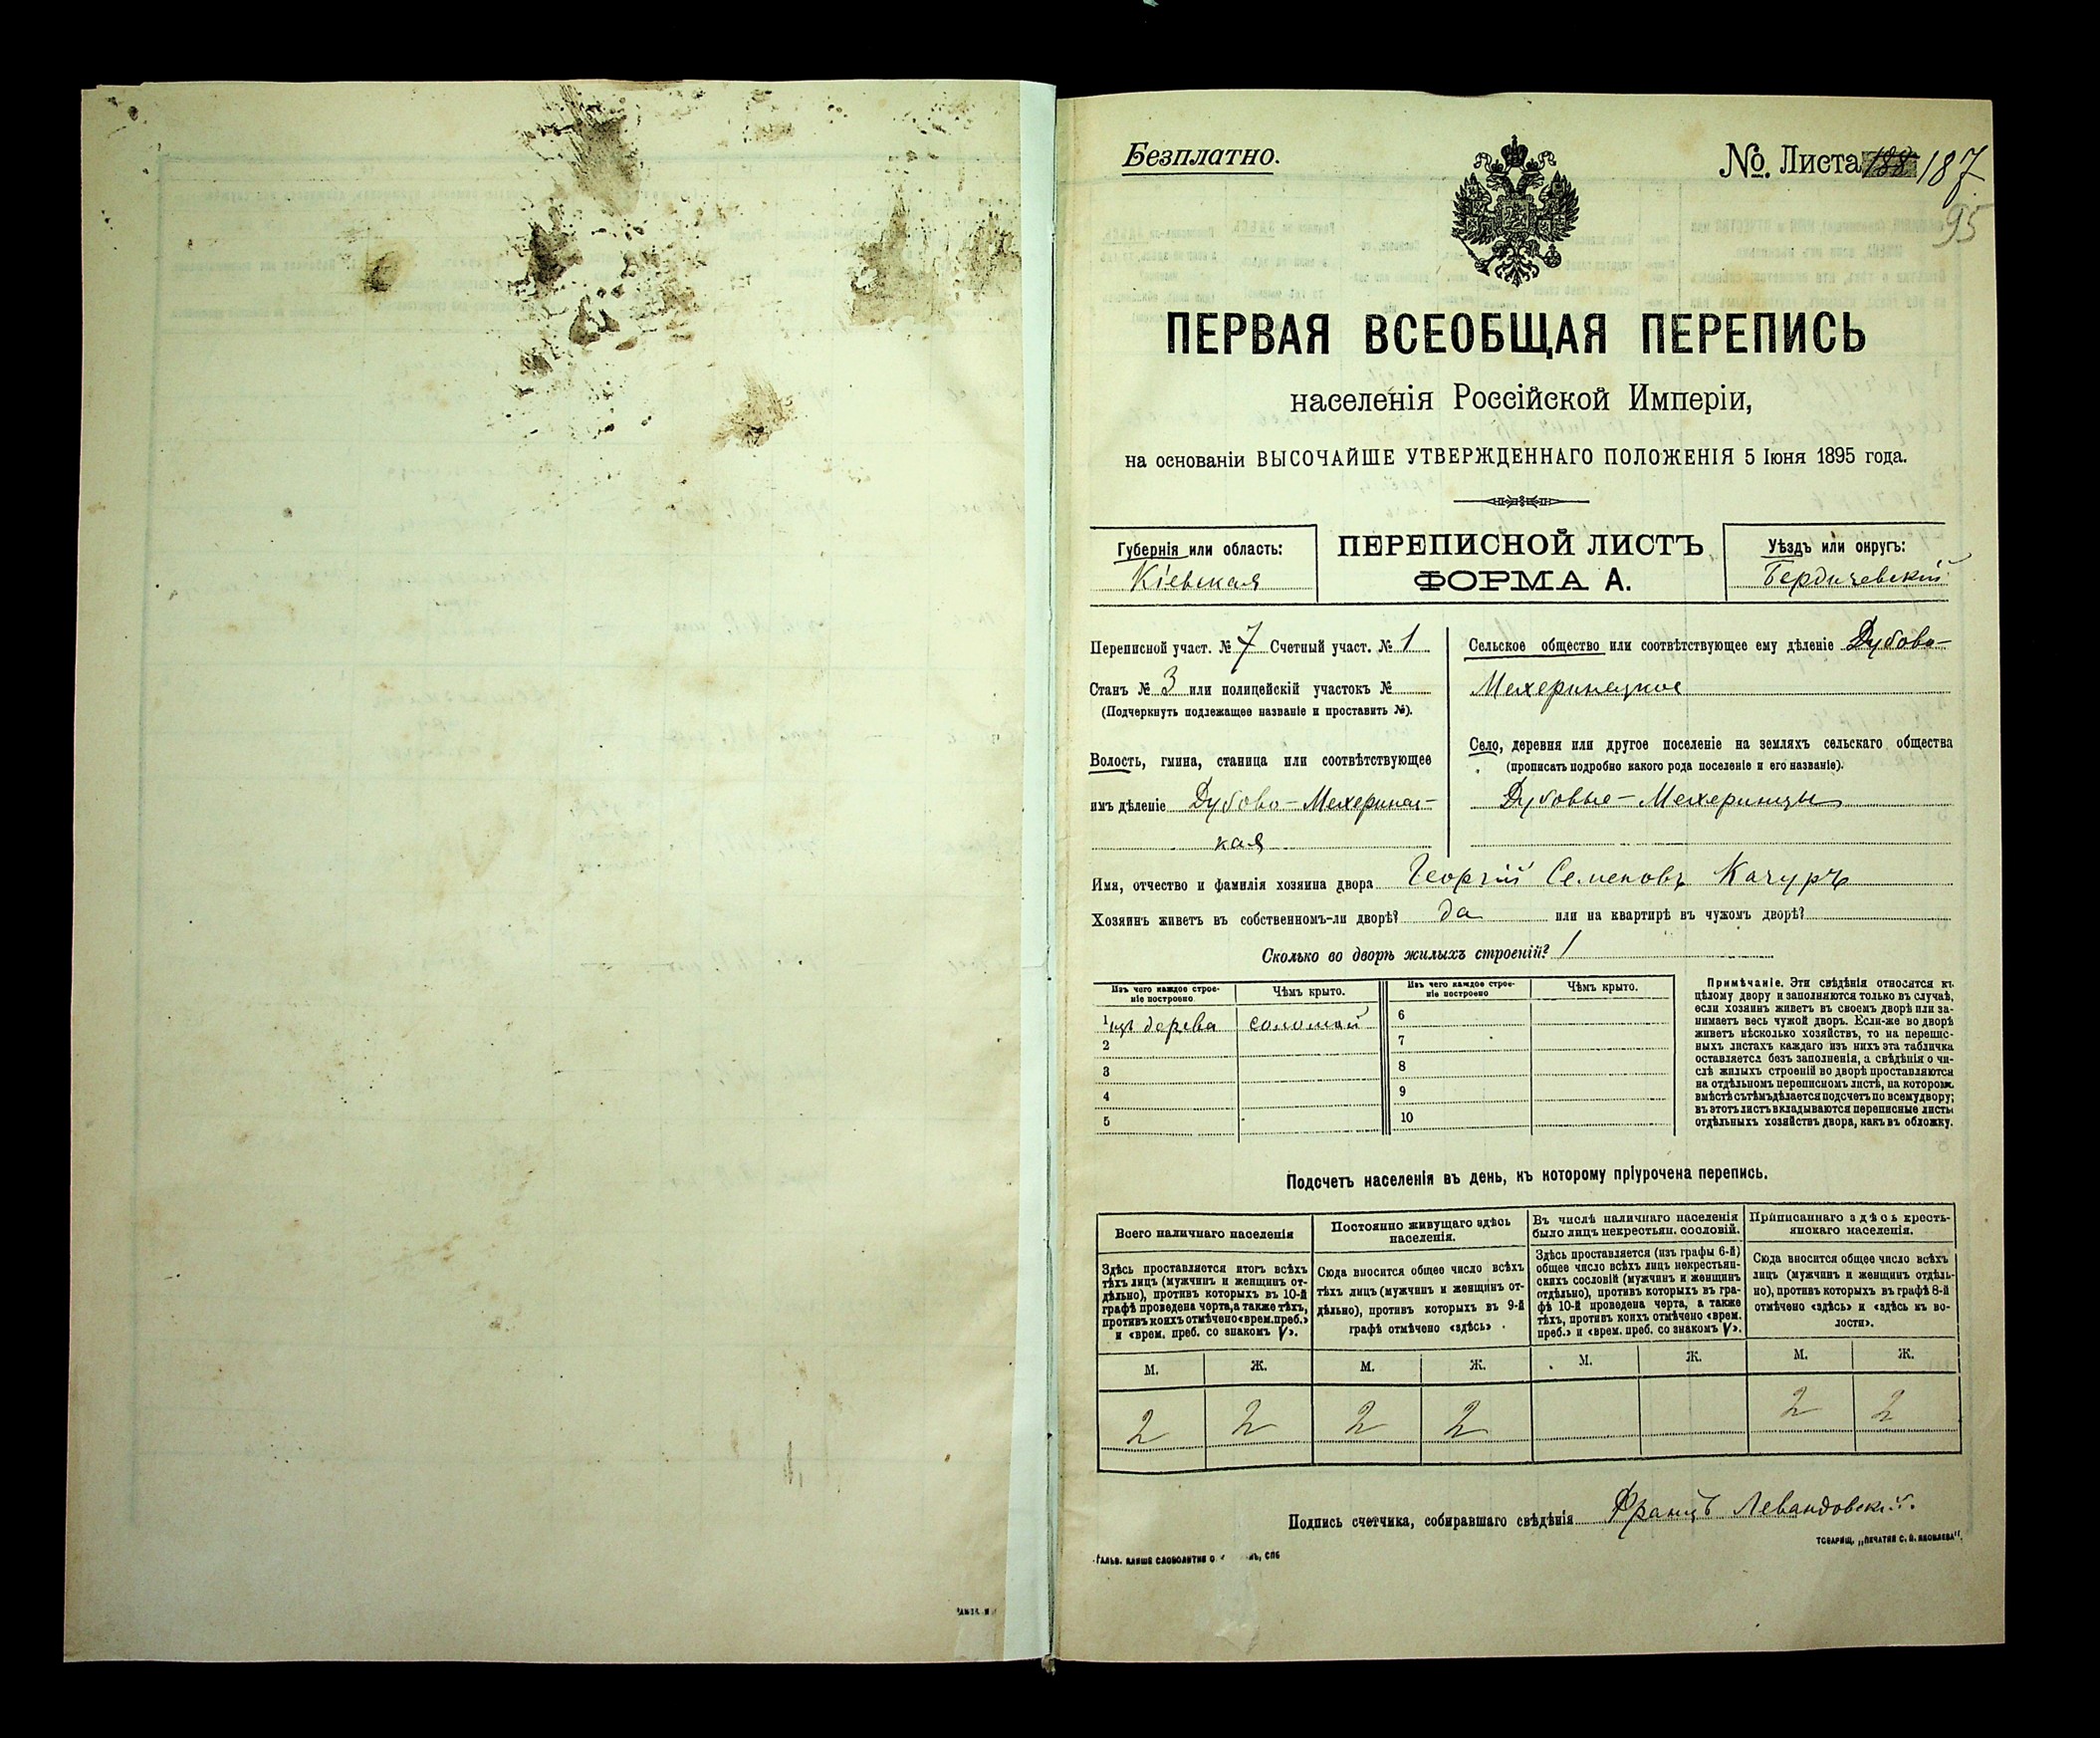 Безплатно.
№. Листа 188 187
95
ПЕРВАЯ ВСЕОБЩАЯ ПЕРЕПИСЬ
населенія Россійской Имперіи,
на основаніи ВЫСОЧАЙШЕ УТВЕРЖДЕННАГО ПОЛОЖЕНІЯ 5 Іюня 1895 года.
Губернія или область:
Кіевская
ПЕРЕПИСНОЙ ЛИСТЪ
ФОРМА А.
Уѣздъ или округъ:
Бердичевскій
Переписной участ. № 7 Счетный участ. № 1
Станъ № 3 или полицейскій участокъ №
(Подчеркнуть подлежащее названіе и проставить №).
Волость, гмина, станица или соотвѣтствующее
имъ дѣленіе Дубово-Мехеринец-
кая
Сельское общество или соотвѣтствующее ему дѣленіе Дубово-
Мехеринецкое
Село, деревня или другое поселеніе на земляхъ сельскаго общества
(прописать подробно какого рода поселеніе и его названіе).
Дубовые-Мехеринцы
Имя, отчество и фамилія хозяина двора Георгій Семеновъ Качуръ
Хозяинъ живетъ въ собственномъ-ли дворѣ? да или на квартирѣ въ чужомъ дворѣ?
Сколько во дворѣ жилыхъ строеній? 1
Изъ чего каждое строе-
ніе построено
Чѣмъ крыто.
Изъ чего каждое строе-
ніе построено
Чѣмъ крыто.
1 изъ дерева соломой 6
2 7
3 8
4 9
5 10
Примѣчаніе. Эти свѣдѣнія относятся къ
цѣлому двору и заполняются только въ случаѣ,
если хозяинъ живетъ въ своемъ дворѣ или за-
нимаетъ весь чужой дворъ. Если-же во дворѣ
живетъ нѣсколько хозяйствъ, то на перепис-
ныхъ листахъ каждаго изъ нихъ эта табличка
оставляется безъ заполненія, а свѣдѣнія о чи-
слѣ жилыхъ строеній во дворѣ проставляются
на отдѣльномъ переписномъ листѣ, на которомъ
вмѣстѣ съ тѣмъ дѣлается подсчетъ по всему двору;
въ этотъ листъ вкладываются переписные листы
отдѣльныхъ хозяйствъ двора, какъ въ обложку.
Подсчетъ населенія въ день, къ которому пріурочена перепись.
Всего наличнаго населенія
Здѣсь проставляется итогъ всѣхъ
тѣхъ лицъ (мужчинъ и женщинъ от-
дѣльно), противъ которыхъ въ 10-й
графѣ проведена черта, а также тѣхъ,
противъ коихъ отмѣчено «врем. преб.»
и «врем. преб. со знакомъ V».
Постоянно живущаго здѣсь
населенія.
Сюда вносится общее число всѣхъ
тѣхъ лицъ (мужчинъ и женщинъ от-
дѣльно), противъ которыхъ въ 9-й
графѣ отмѣчено «здѣсь».
Въ числѣ наличнаго населенія
было лицъ некрестьян. сословій.
Здѣсь проставляется (изъ графы 6-й)
общее число всѣхъ лицъ некрестьян-
скихъ сословій (мужчинъ и женщинъ
отдѣльно), противъ которыхъ въ гра-
фѣ 10-й проведена черта, а также
тѣхъ, противъ коихъ отмѣчено «врем.
преб.» и «врем. преб. со знакомъ V».
Приписаннаго здѣсь кресть-
янскаго населенія.
Сюда вносится общее число всѣхъ
лицъ (мужчинъ и женщинъ отдѣль-
но), противъ которыхъ въ графѣ 8-й
отмѣчено «здѣсь» и «здѣсь къ во-
лости».
М. Ж. М. Ж. М. Ж. М. Ж.
2 2 2 2 2 2
Подпись счетчика, собиравшаго свѣдѣнія Францъ Левандовскій.
ТОВАРИЩ. „ПЕЧАТНЯ С. П. ЯКОВЛЕВА".